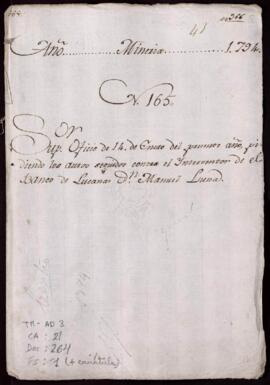 41
Año Mineria 1.794.
N. 165.
Sor
Sup. Oficio de 14. de Enero del presente año, pi-
diendo los autos seguidos contra el Interventor de el
Banco de Lucanas Dn. Manuel Luna
TM-AD 3
CA: 21
Doc: 264
FS: 1 (+ carátula)